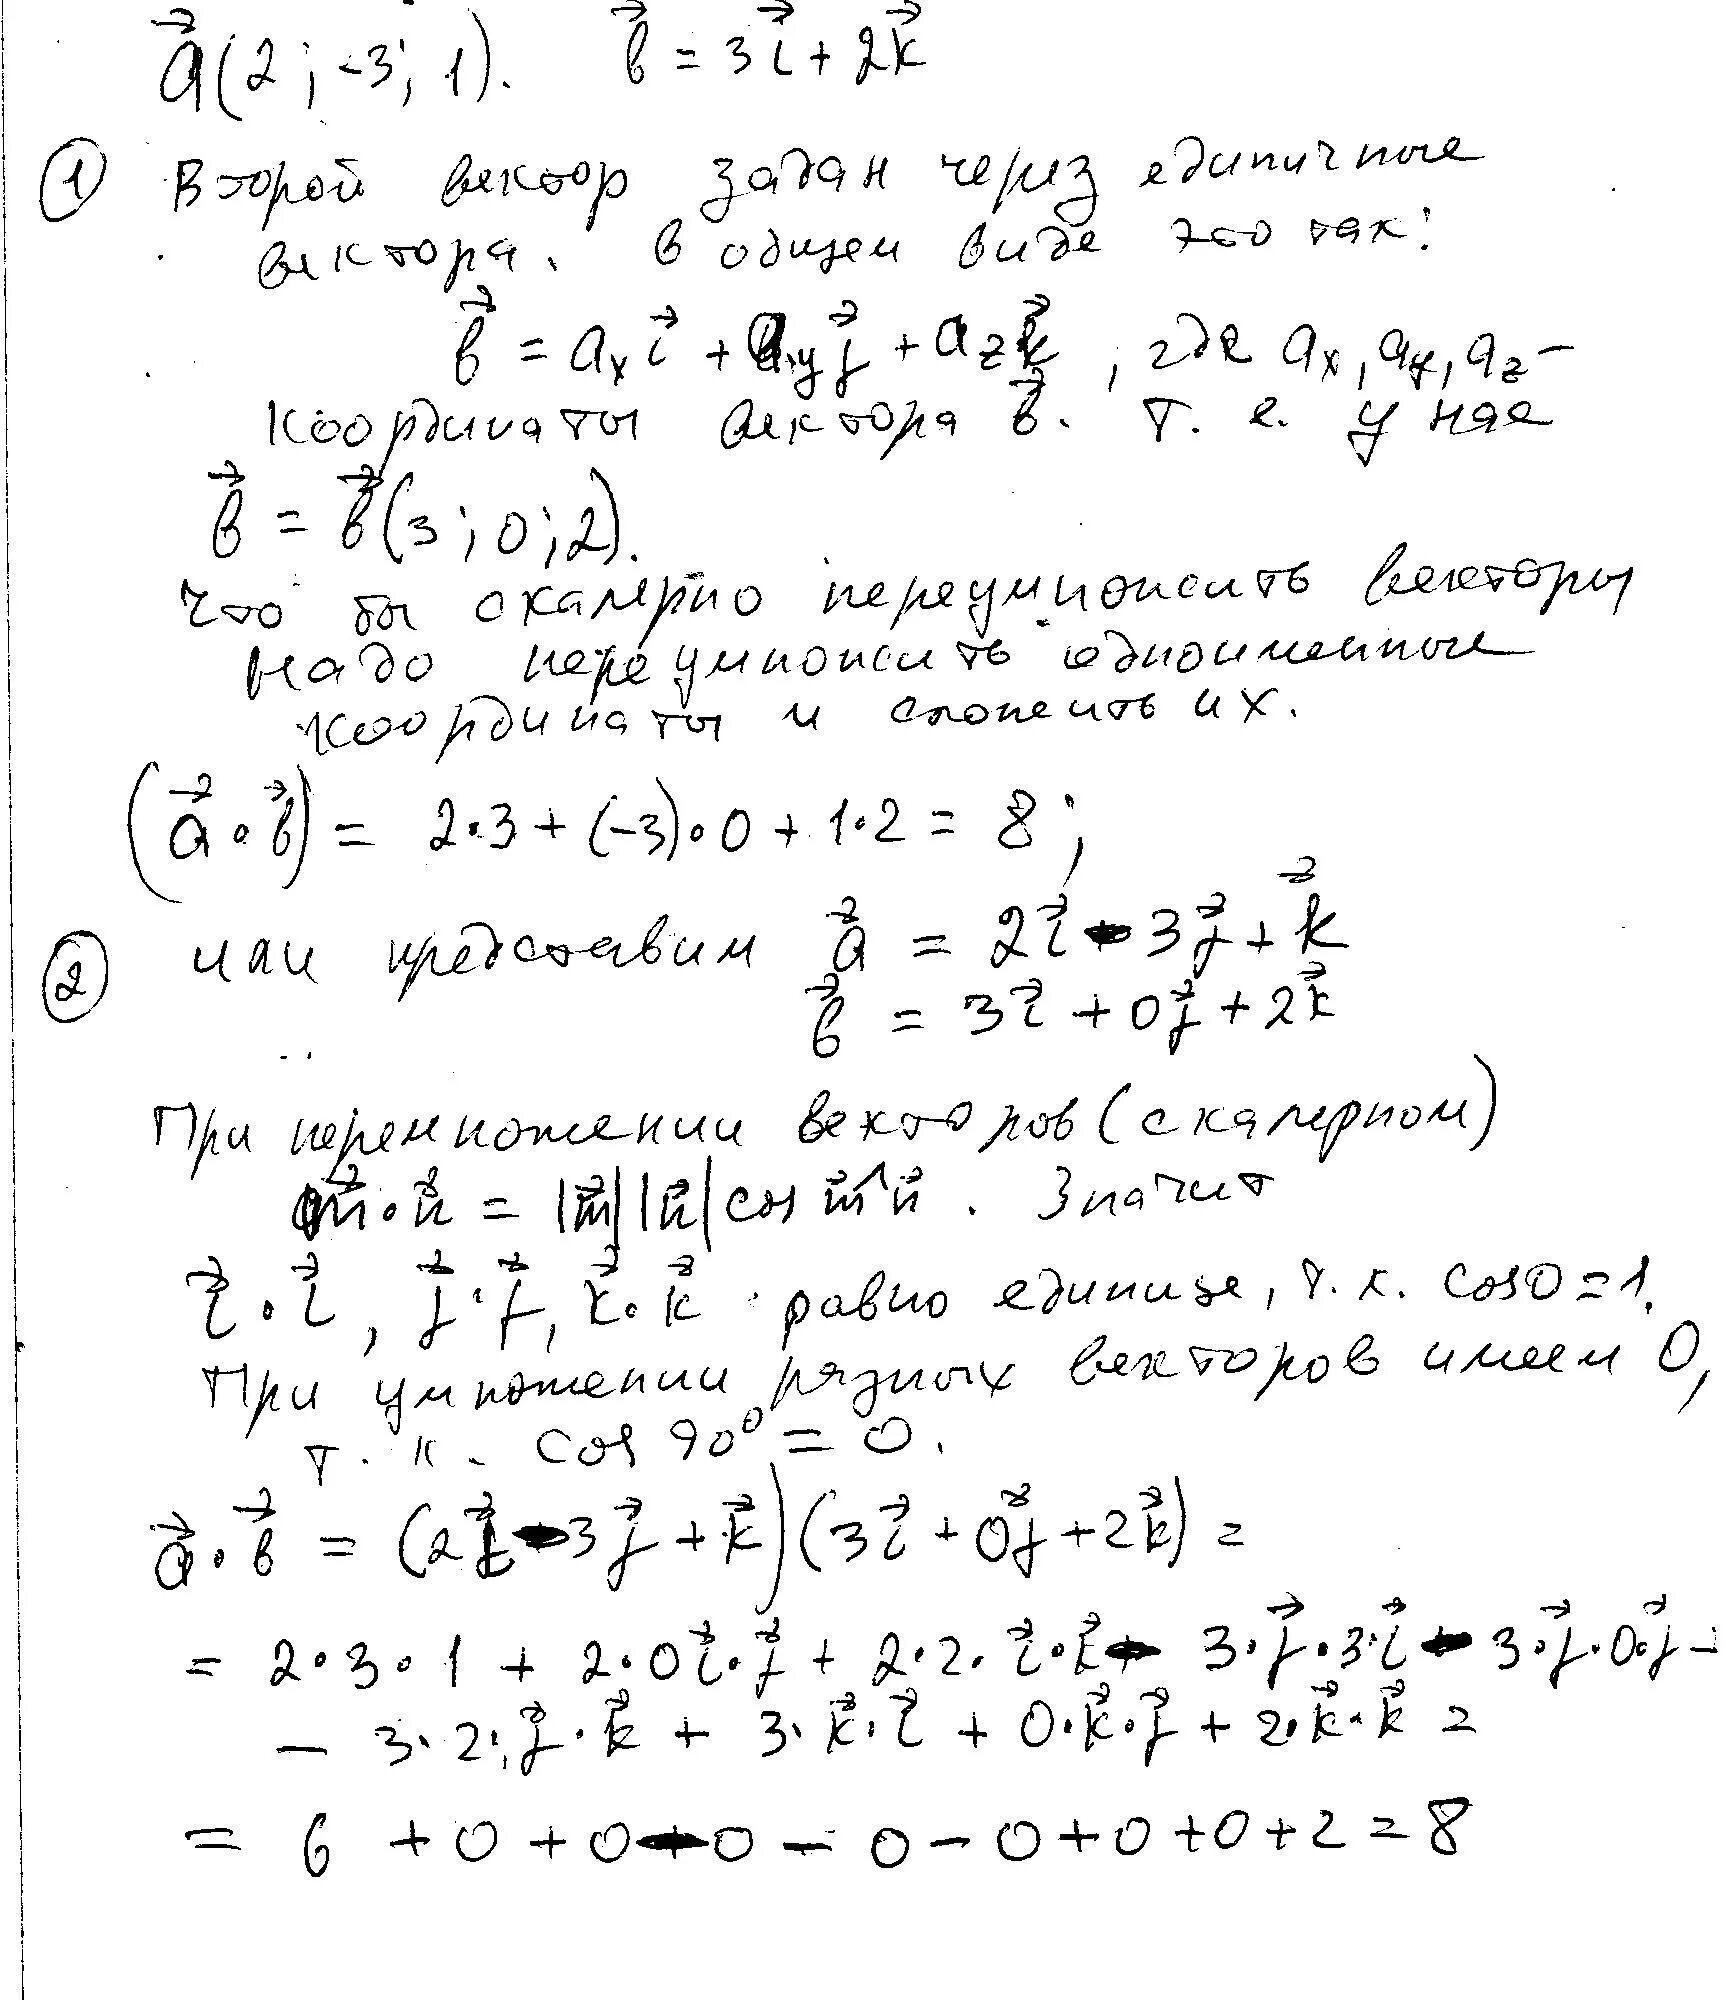 a⃗(2; -3; 1). b⃗ = 3i⃗ + 2k⃗
① Второй вектор задан через единичные
вектора. в общем виде это так:
b⃗ = aₓi⃗ + a_y j⃗ + a_z k⃗, где aₓ, a_y, a_z –
координаты вектора b⃗. т. е. у нас
b⃗ = b⃗(3; 0; 2).
Что бы скалерно переумножить векторы
надо переумножить одноименные
координаты и сложить их.
(a⃗ · b⃗) = 2·3 + (-3)·0 + 1·2 = 8;
② или представим a⃗ = 2i⃗ - 3j⃗ + k⃗
b⃗ = 3i⃗ + 0j⃗ + 2k⃗
При перемножении векторов (скалерном)
m⃗·n⃗ = |m⃗||n⃗| cos m⃗^n⃗. Значит
i⃗·i⃗, j⃗·j⃗, k⃗·k⃗ равно единице, т. к. cos0=1.
При умножении разных векторов имеем 0,
т. к. cos 90° = 0.
a⃗·b⃗ = (2i⃗ - 3j⃗ + k⃗)(3i⃗ + 0j⃗ + 2k⃗) =
= 2·3·1 + 2·0i⃗·j⃗ + 2·2·i⃗·k⃗ - 3·j⃗·3·i⃗ - 3·j⃗·0·j⃗ -
- 3·2·j⃗·k⃗ + 3·k⃗·i⃗ + 0·k⃗·j⃗ + 2·k⃗·k⃗ =
= 6 + 0 + 0 - 0 - 0 - 0 + 0 + 0 + 2 = 8